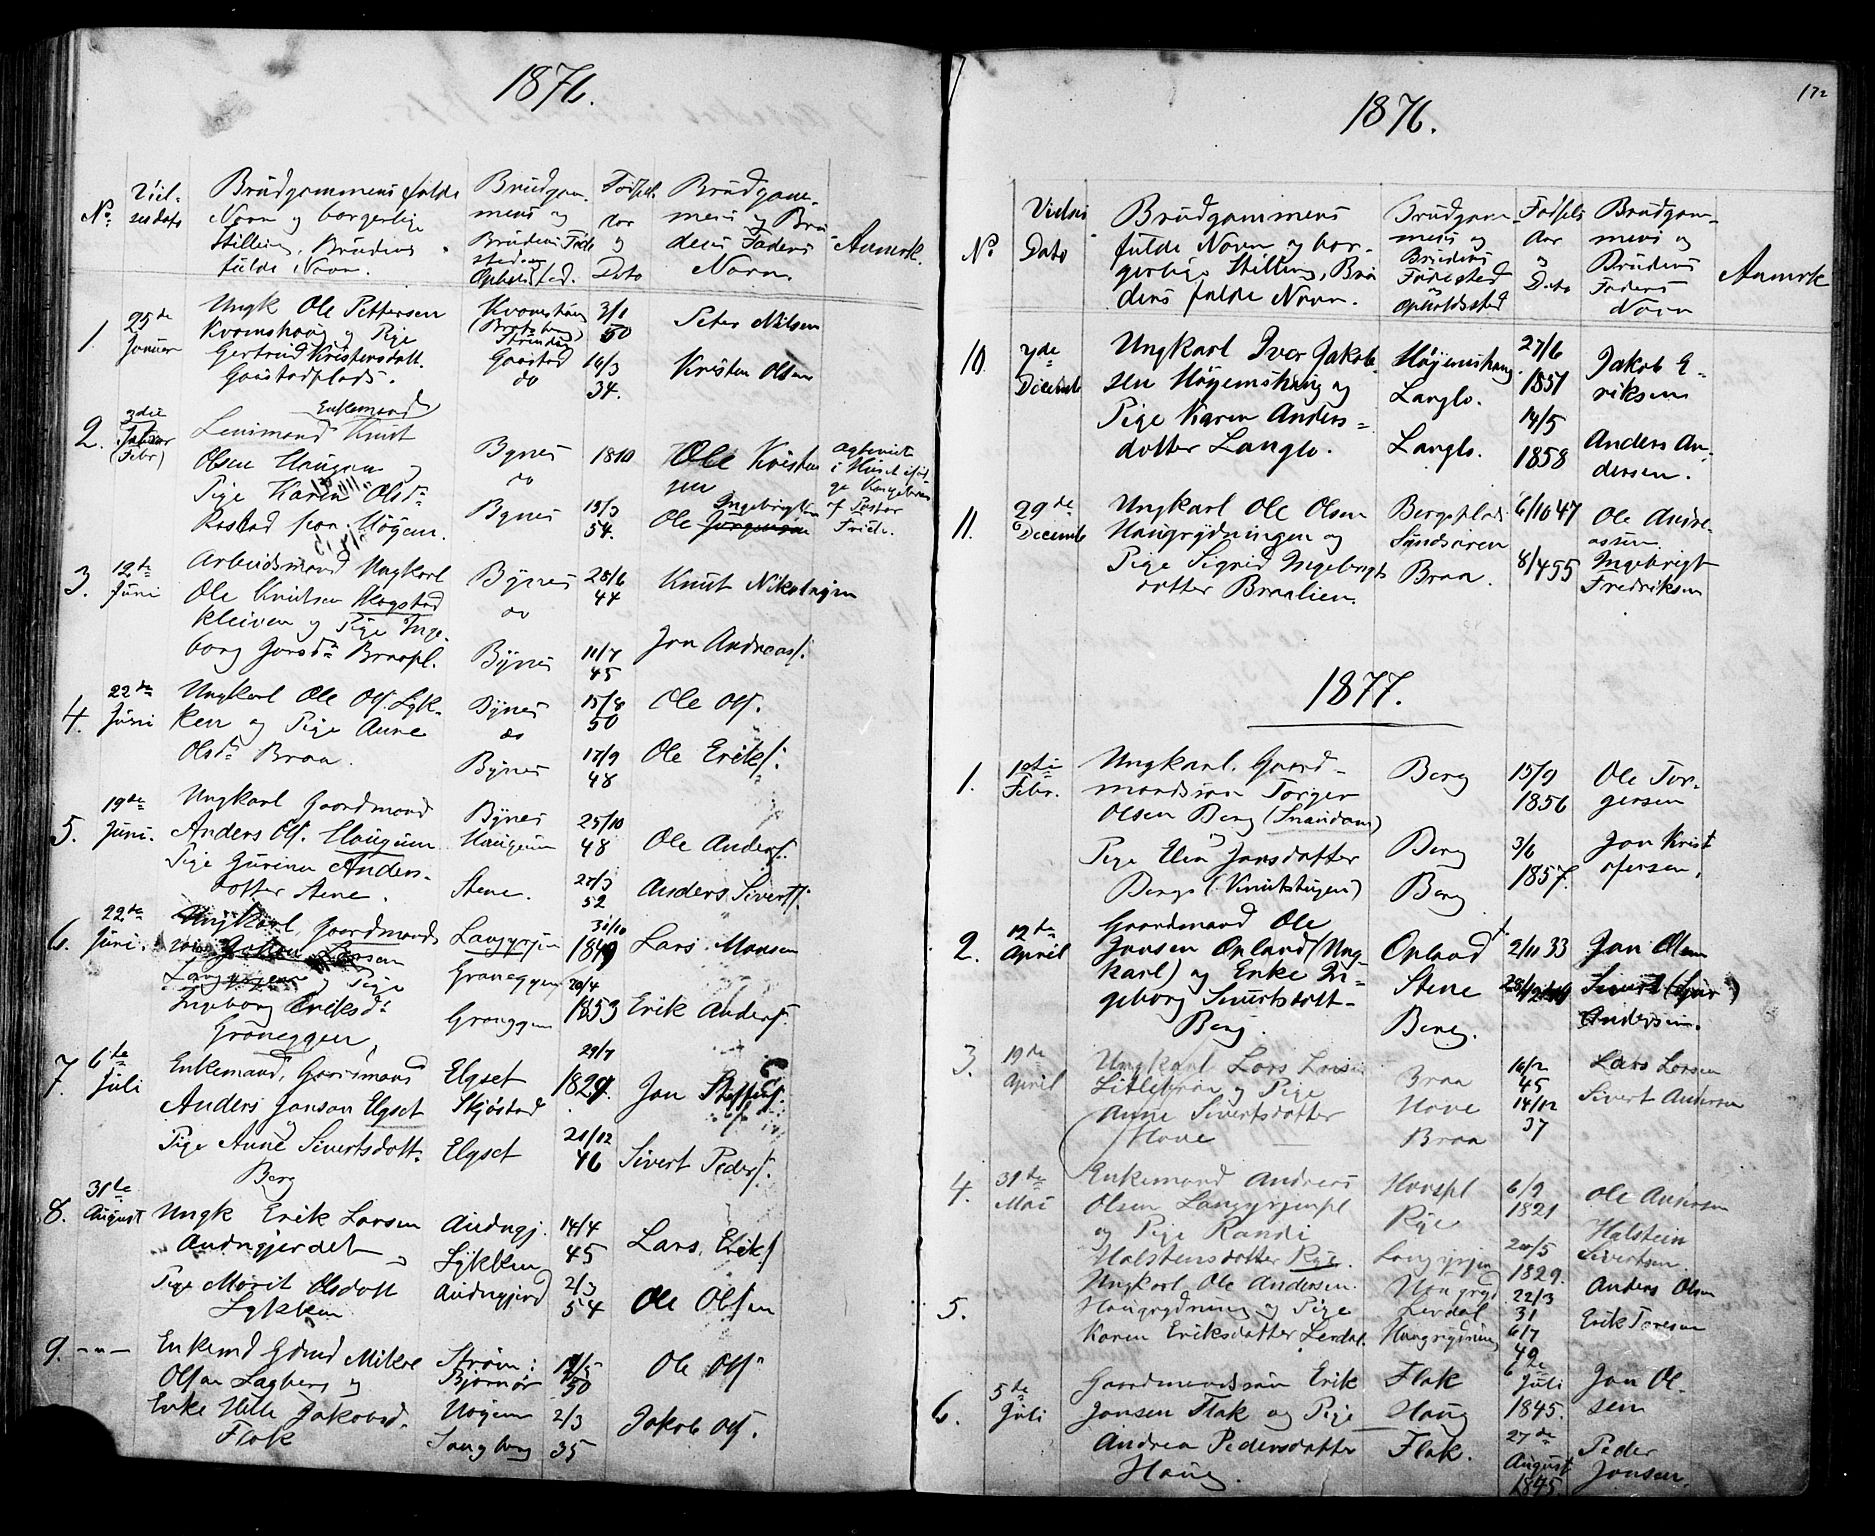 1876.
No.
Viel-
sesdato
Brudgommens fulde
Navn og borgerlige
Stilling, Brudens
fulde Navn.
Brudgom-
mens og
Brudens Føde
sted og
Opholdsted.
Fødsels
Aar
og
Dato
Brudgom-
mens og Bru-
dens Faders
Navn
Anmærk.
1.
25de
Januar
Ungk Ole Pettersen
Kvamshaug og Pige
Gertrud Kristensdatt.
Gaustadplads.
Gaustad
do
3/1
50
16/3
34.
Peter Nilsen
Kristen Olsen
2.
3die
(Febr)
Enkemand
Knut
Olsen Haugan og
Pige Karen Olsdr
Rostad fra Høgem.
Bynes
do
Bynes
1810
13/3
54.
Ole Kristen
sen
Ingebrigtsen
Ole
i Huset
af Pastor
3.
12te
Juni
Arbeidsmand Ungkarl
Ole Knudsen Hogstad
kleiven og Pige Inge-
borg Jonsdr Braapl.
Bynes
do
Bynes
28/6
44
11/7
45
Knut Nikolaisen
Jon Andreass.
4.
22de
Juni
Ungkarl Ole Ols. Lyk-
ken og Pige Anne
Olsdr Braa.
Bynes
do
Bynes
15/8
50
17/9
48
Ole Ols.
Ole Eriks.
5.
19de
Juni.
Ungkarl Gaardmand
Anders Ols. Haugum
Pige Gurina Anders-
datter Stene.
Bynes
Haugum
Stene.
25/10
48
27/3
52
Ole Anders.
Anders Siverts.
6.
22de
Juni.
Ungkarl, Gaardmands
og Pige
Ingeborg Eriksdr
Graneggen,
Langørjen
Graneggen
Graneggen
31/10
1849
20/4
1853
Lars Monsen
Erik Anders.
7.
6te
Juli
Enkemand, Gaardmand
Anders Jonsen Elgset
Pige Anne Sivertsdatt.
Berg
Elgset
Skjøstad
Elgset
29/7
1829.
21/12
46
Jon Steffens.
Sivert Peders.
8.
31te
August
Ungk Erik Larsen
Audngjerdet
Pige Marit Olsdatt
Lykken
Audngj.
Lykken
Audngjerd
14/4
45
2/3
54
Lars Eriks.
Ole Olsen
9. -"-
Enkemd Gdmd Mikal
Olsen Lagberg og
Enke Jakobsd.
Flak
Strøm:
Bjørnør
50
2/3
35
Ole Ols.
Jakob Ols.
172
1876.
No
Vielses
Dato
Brudgommens
fulde Navn og bor-
gerlige Stilling, Bru
dens fulde Navn.
Brudgom-
mens og
Brudens
Fødested
Opholdssted
Fødsels
Aar
og
Dato
Brudgom-
mens og
Brudens
Faders
Navn
Anmærk
10.
7de
Decemb
Ungkarl Iver Jakob-
sen Høgemshaug og
Pige Karen Anders=
datter Langlo.
Høgemshaug.
Langlo.
Langlo.
27/6
1851
14/5
1858
Jakob E-
riksen
Anders An-
dersen.
11.
29de
Decemb
Ungkarl Ole Olsen
Haugrydningen og
Pige Sigrid Ingebrigts
datter Braalien.
Bergsplads
Braa.
6/10 47
8/4 55
Ole Andre-
assen
Ingebrigt
Fredriksen
1877.
1.
1ste
Febr.
Ungkarl, Gaard-
mandssøn Torger
Olsen Berg (Inandam)
Pige Elen Jonsdatter
Bergs (Knutstugen)
Berg
Berg
Berg
15/9
1856
3/6
1857.
Ole Tor-
gersen
Jon Krist
ofersen,
2.
12te
April
Gaardmand Ole
Jonsen Opland (Ung-
karl) og Enke In-
geborg Sivertsdatt-
Berg.
Opland
Stene
Berg.
2/11 33
Jon Olsen
Andersen.
3.
19de
April
Ungkarl Lars Larsen
Litlebraa og Pige
Anne Sivertsdatter
Hove
Braa
Hove
Braa
16/2
45
14/12
37
Lars Larsen
Sivert Andersen
4.
31te
Mai
Enkemand Andreas
Olsen Langørjenpl
og Pige Randi
Halstensdatter Rye.
Rye
Langørjen
6/9
1821
20/5
1829.
Ole Andersen
Halstein
Sivertsen.
5.
Ungkarl Ole Andersen
Haugrydning og Pige
Karen Eriksdatter Lerdal.
Haugryd
Lerdal
Haugrydning
22/3
31
6/7
49
Anders Olsen
Erik Taresen
6.
5te
Juli
Gaardmandssøn Erik
Jonsen Flak og Pige
Andrea Pedersdatter
Haug.
Flak
Haug
Flak.
Juli
1845.
27de
August
1845.
Jon Ol-
sen
Peder
Jonsen.